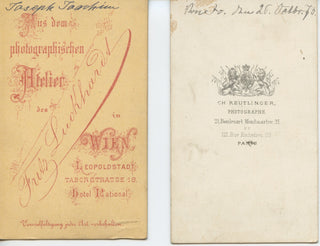 Joseph Joachim
Aus dem
photographischen
Atelier
des
Fritz Luckhardt
in
WIEN
LEOPOLDSTADT
TABORSTRASSE 18.
Hotel National
Vervielfältigung jeder Art vorbehalten.
den 28.
CH. REUTLINGER,
PHOTOGRAPHE
21, Boulevart Montmartre, 21
ET
112, Rue Richelieu, 112
PARIS